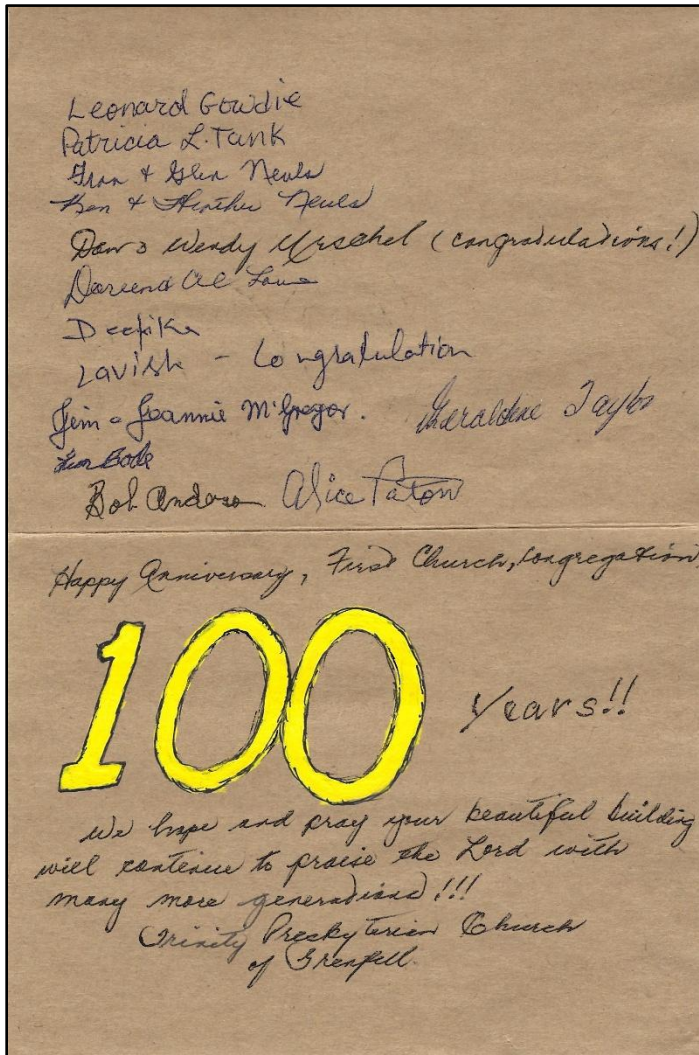 Leonard Gowdie
Patricia L. Tank
Fran & Glen Neuls
Ken & Heather Neuls
Don & Wendy (congradulations!)
Doreen Al
Deepika
Lavish - Congratulation
Jim & Jeannie McGregor. Geraldine Taylor
Bode
Bob Anderson Alice Paton
Happy Anniversary, First Church, congregation
100 years!!
We hope and pray your beautiful building
will continue to praise the Lord with
many more generations!!!
Trinity Presbyterian Church
of Grenfell.